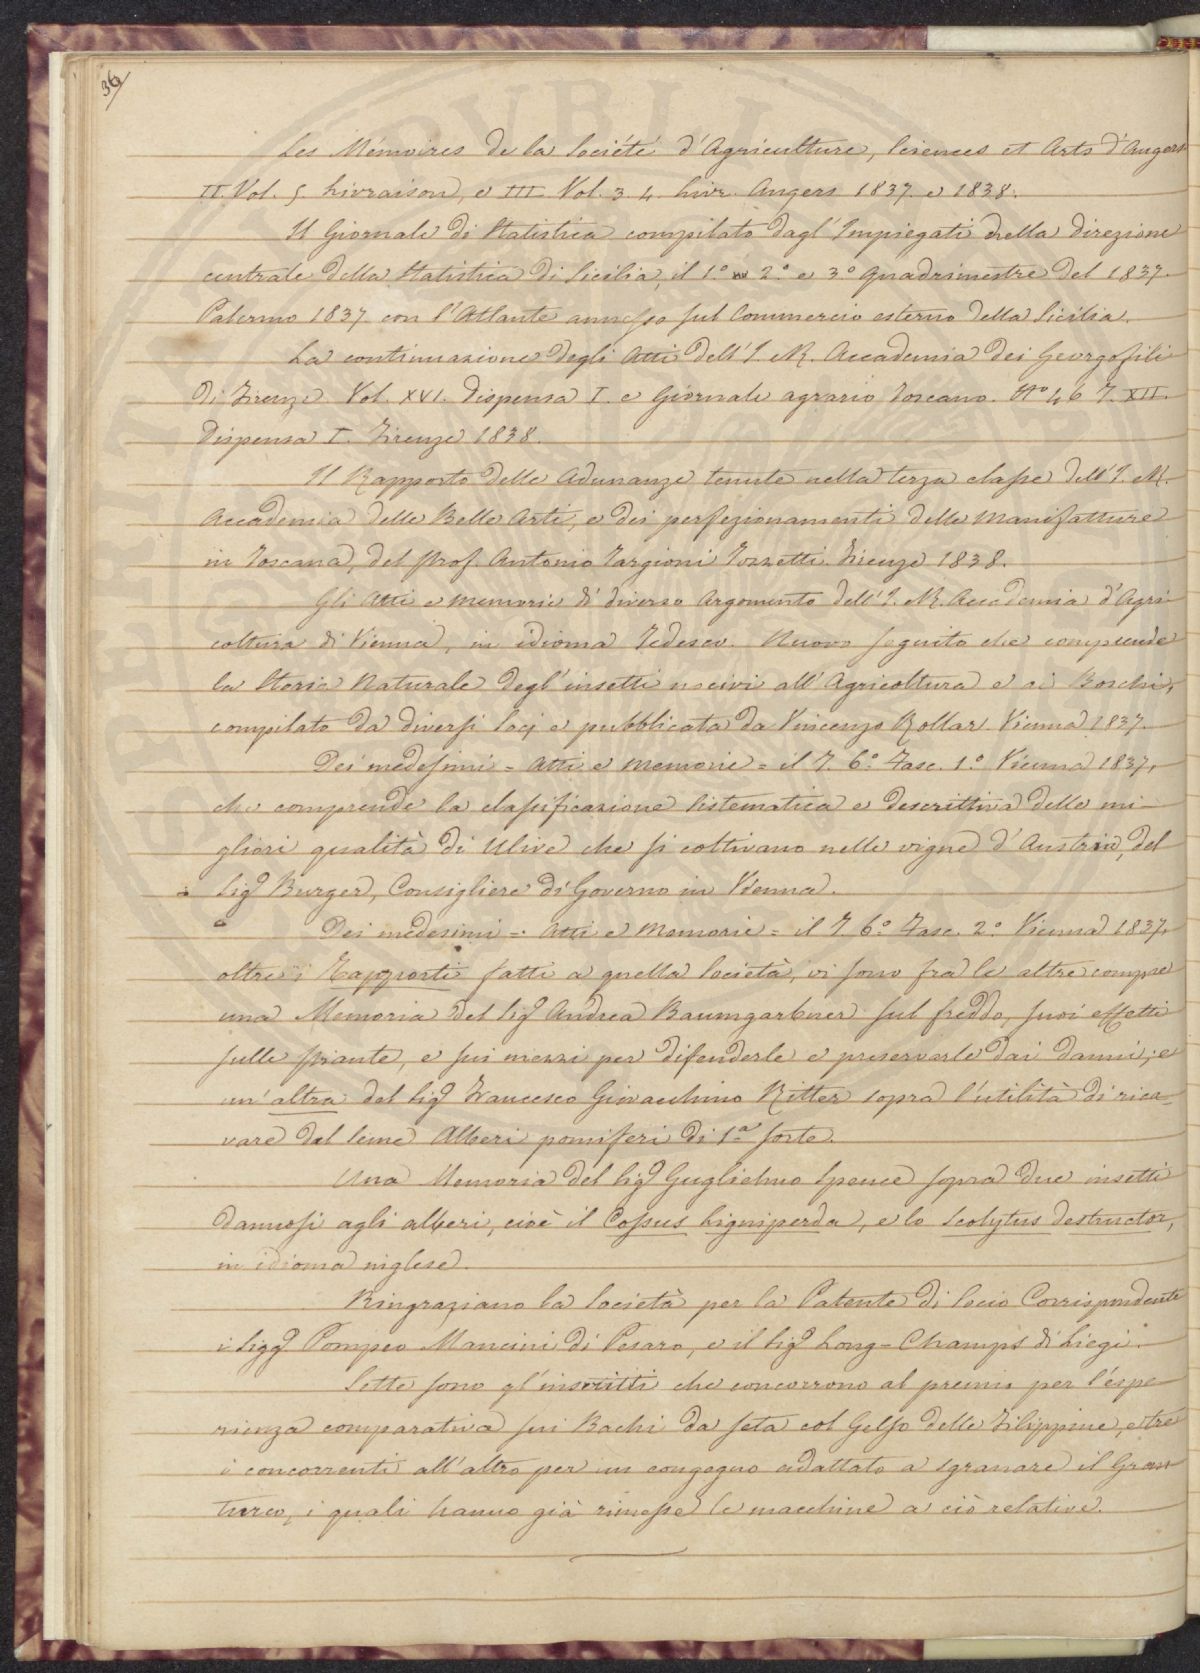 36
Les Mémoires de la Société d'Agriculture, Sciences et Arts d'Angers
II. Vol. 5. Livraison, e III Vol. 3 4. Livr. Angers 1837. e 1838.
Il Giornale di Statistica compilato dagl'Impiegati della direzione
centrale della Statistica di Sicilia, il 1.º 2.º e 3º quadrimestre del 1837.
Palermo 1837 con l'Atlante annesso sul Commercio esterno della Sicilia.
La continuazione degli Atti dell'I. R. Accademia dei Georgofili
di Firenze Vol. XVI. dispensa I. e Giornale agrario Toscano. Nº 46 T. XII.
Dispensa I. Firenze 1838.
Il Rapporto delle Adunanze tenute nella terza classe dell'I. R.
Accademia delle Belle Arti, e dei perfezionamenti delle Manifatture
in Toscana, del prof. Antonio Targioni Tozzetti. Firenze 1838.
Gli Atti e memorie di diverso Argomento dell'I. R. Accademia d'Agri-
coltura di Vienna, in idioma Tedesco. Nuovo seguito che comprende
la Storia Naturale degl'insetti nocivi all'Agricoltura e ai Boschi,
compilato da diversi Socj e pubblicata da Vincenzo Kollar. Vienna 1837.
Dei medesimi = Atti e Memorie = il T. 6.º Fasc. 1.º Vienna 1837,
che comprende la classificazione sistematica e descrittiva delle mi-
gliori qualità di Ulive che si coltivano nelle vigne d'Austria, del
Sigr Burger, Consigliere di Governo in Vienna.
Dei medesimi = Atti e Memorie = il T. 6.º Fasc. 2.º Vienna 1837,
oltre i Rapporti fatti a quella Società, vi sono fra le altre comprese
una Memoria del Sigr Andrea Baumgartner sul freddo, suoi effetti
sulle piante, e sui mezzi per difenderle e preservarle dai danni; e
un'altra del Sigr Francesco Giovacchino Ritter sopra l'utilità di rica-
vare dal seme Alberi pomiferi di 1.ª sorte.
Una Memoria del Sigr Guglielmo Spence sopra due insetti
dannosi agli alberi, cioè il Cossus Ligniperda, e lo Scolytus destructor,
in idioma inglese.
Ringraziano la Società per la Patente di Socio Corrispondente
i Sigg Pompeo Mancini di Pesaro, e il Sigr Long-Champs di Liegi.
Sette sono gl'inscritti che concorrono al premio per l'espe-
rienza comparativa sui Bachi da seta col Gelso delle Filippine, e tre
i concorrenti all'altro per un congegno adattato a sgranare il Gran
turco, i quali hanno già rimesse le macchine a ciò relative.